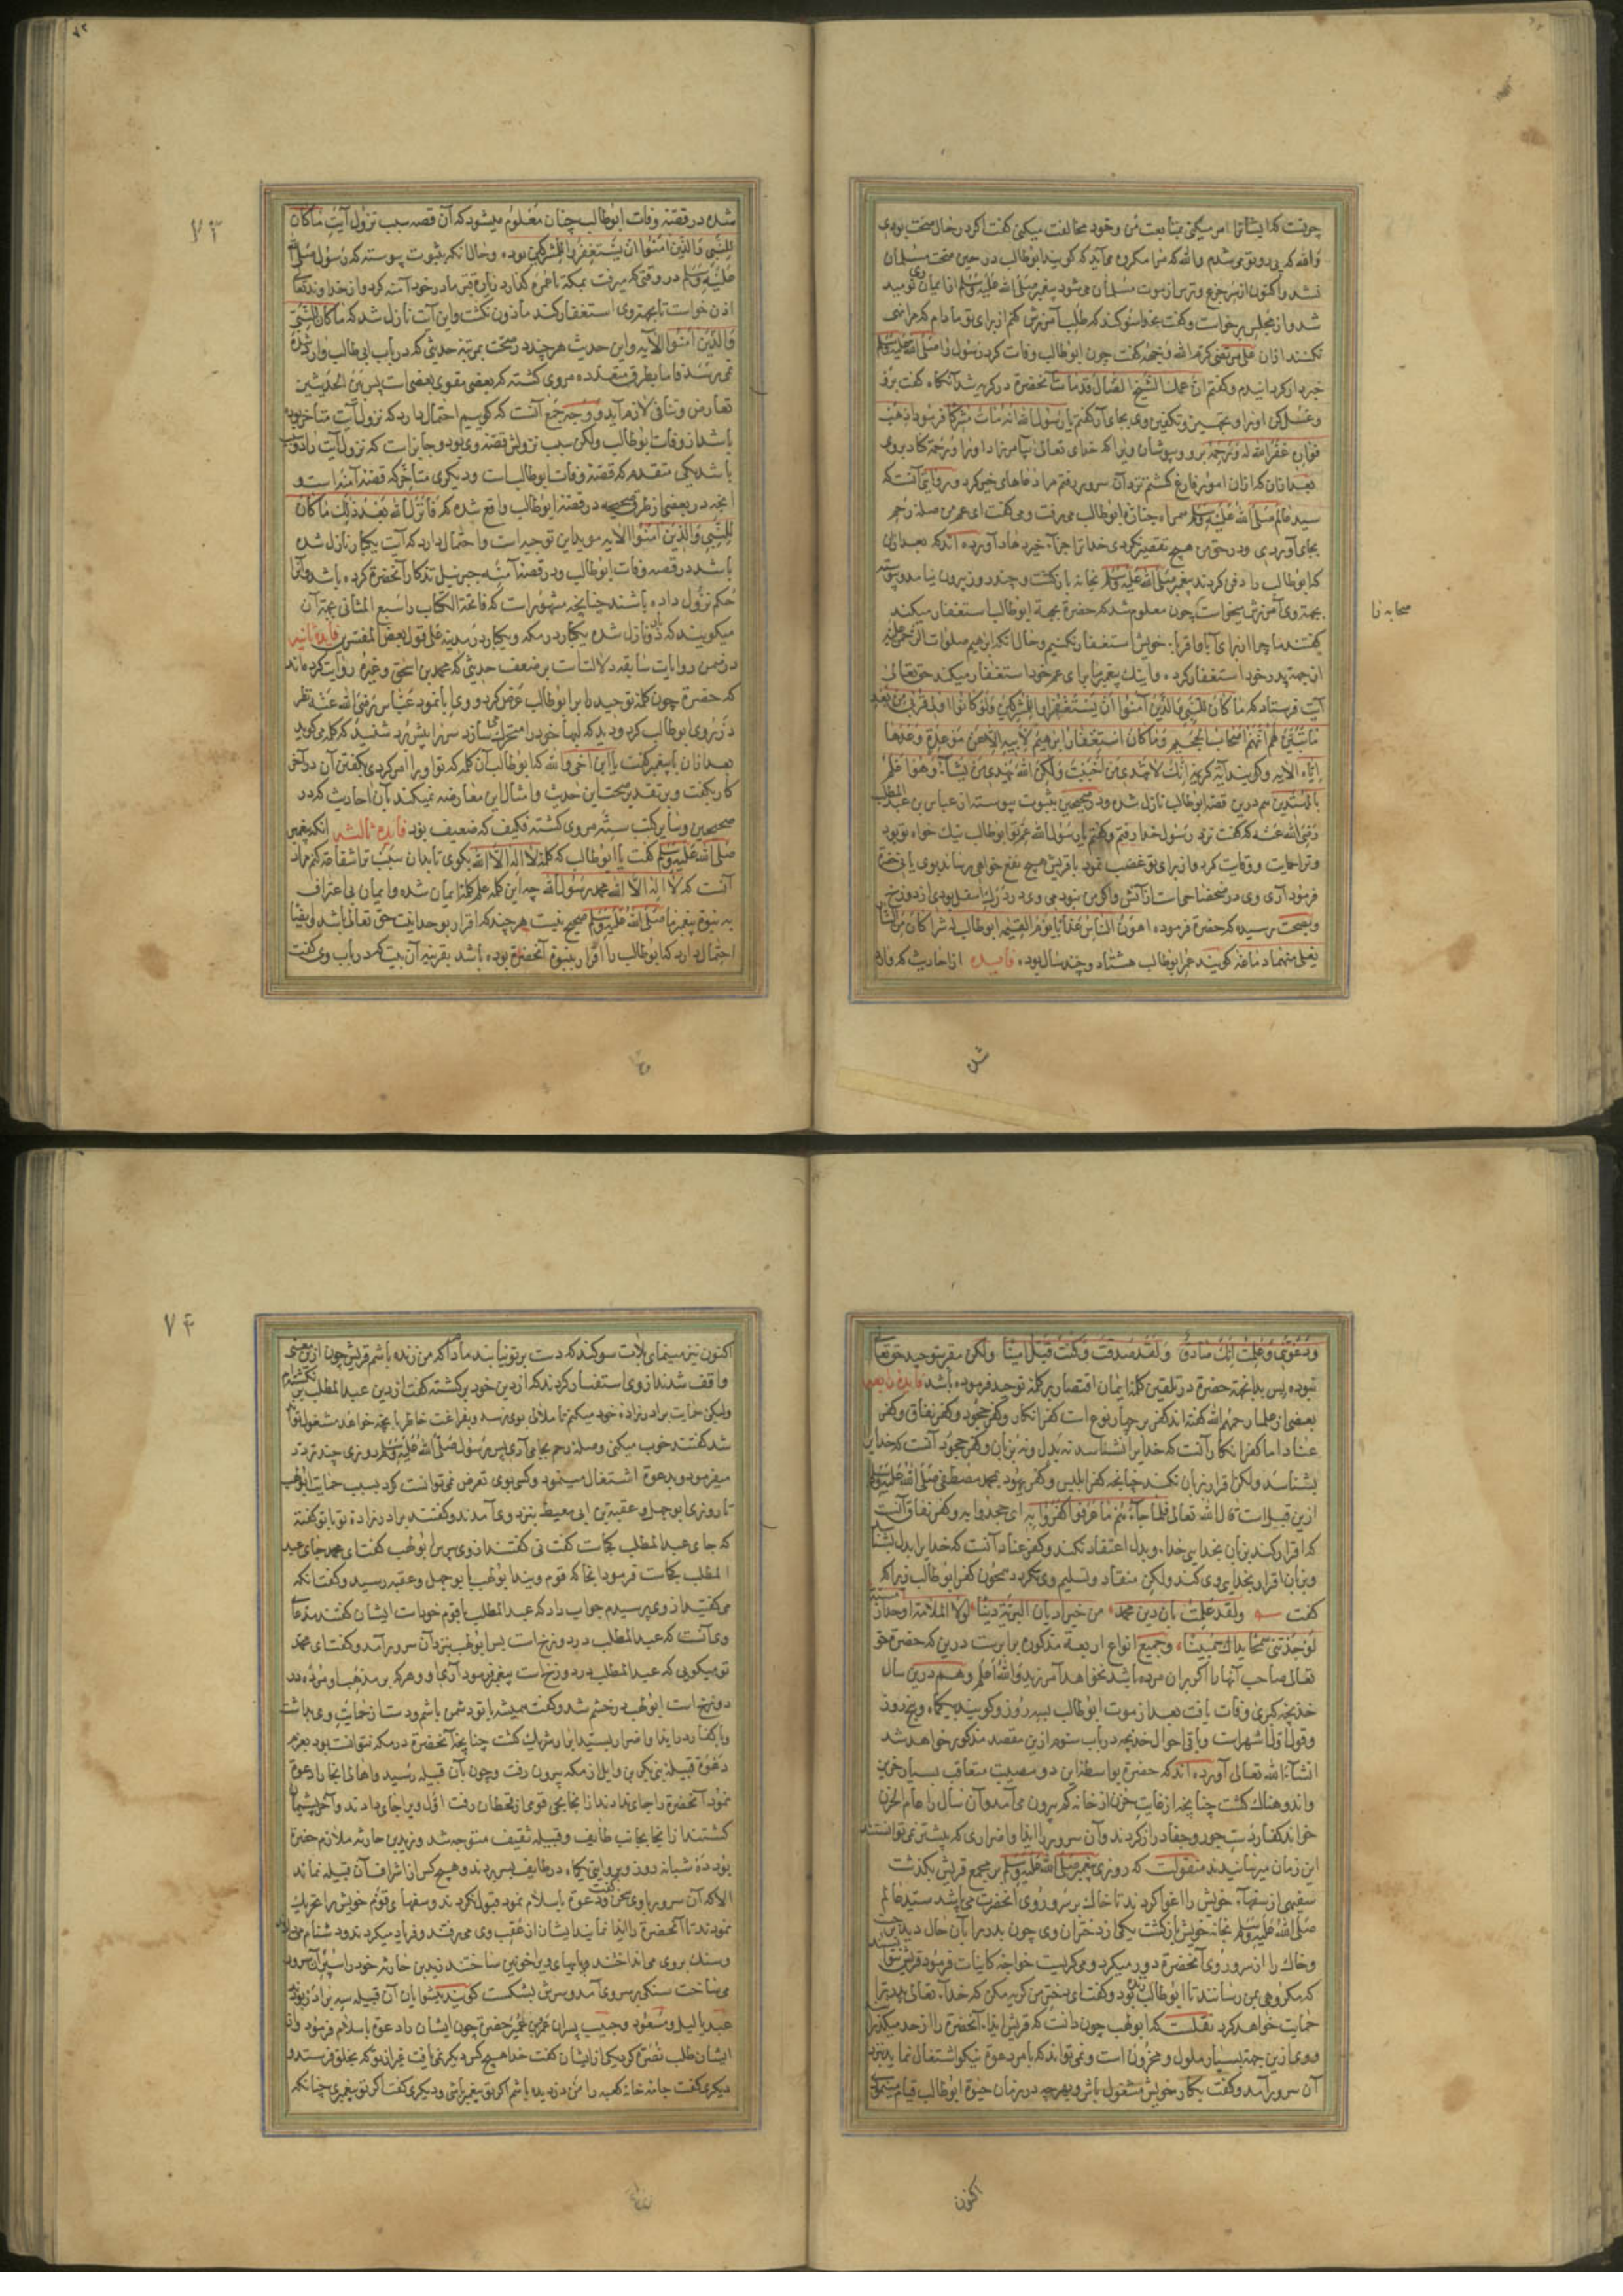 چونست که ایشانرا امر میکنی بمتابعت من و خود مخالفت میکنی گفت اگر در حال صحت بودی
والله که پی روی تو می شدم والله که مرا مکروه می آید که گویند ابوطالب در حین صحت مسلمان
نشد و اکنون از سر جزع و ترس از موت مسلمان می شود پیغمبر صلی الله علیه وسلم از ایمان وی نومید
شد و از مجلس برخواست و گفت بخدا سوگند که طلب آمرزش کنم از برای تو مادام که مرا نهی
نکنند ازان علی مرتضی کرم الله وجهه گفت چون ابوطالب وفات کرد رسول را صلی الله علیه وسلم
خبردار گردانیدم و گفتم ان عمک الشیخ الضال قد مات آنحضرة در گریه شد آنگاه گفت برو
و غسل کن او را و تجهیز و تکفین وی بجای آر گفتم یا رسول الله انه مات مشرکا فرمود اذهب
فواره غفر الله له ورحمه برو و بپوشان ویرا که خدای تعالی بیامرزاد او را و رحمة کناد بروی
بعد ازان که ازان امور فارغ گشتم نزد آن سرور رفتم مرا دعاهای خیر کرد و روایتی آنست که
سید عالم صلی الله علیه وسلم همراه جنازه ابوطالب می رفت و می گفت ای عم من صله رحم
بجای آوردی و در حق من هیچ تقصیر نکردی خدا ترا جزاء خیر دهاد آورده اند که بعد ازان
که ابوطالب را دفن کردند پیغمبر صلی الله علیه وسلم بخانه بازگشت و چند روز بیرون نیامد و پیوسته
بجهة وی آمرزش میخواست چون معلوم شد که حضرة بجهة ابوطالب استغفار میکند
صحابه نا
گفتند ما چرا از برای آبا و اقرباء خویش استغفار نکنیم و حال آنکه ابرهیم صلوات الرحمن علیه
از جهة پدر خود استغفار کرده و اینک پیغمبر ما برای عم خود استغفار میکند حق تعالی
آیت فرستاد که ما کان للنبی والذین آمنوا ان یستغفروا للمشرکین ولو کانوا اولی قربی من بعد
ما تبین لهم انهم اصحاب الجحیم وما کان استغفار ابرهیم لابیه الا عن موعدة وعدها
ایاه الآیه و گویند آیه کریمه انک لا تهدی من احببت ولکن الله یهدی من یشاء وهو اعلم
بالمهتدین هم درین قصه ابوطالب نازل شده و در صحیحین بثبوت پیوسته از عباس بن عبد المطلب
رضی الله عنه که گفت نزد رسول خدا رفتم و گفتم یا رسول الله عم تو ابوطالب نیک خواه تو بود
و ترا حمایت و وقایت کرد و از برای تو غضب نمود با قریش هیچ نفع خواهی رسانید بوی یا نی حضرة
فرمود آری وی در ضحضاحی است از آتش و اگر من نبودمی وی در درک اسفل بودی از دوزخ
و بصحت رسیده که حضرة فرموده اهون الناس عذابا یوم القیمه ابوطالب له شراکان من النار
یغلی منهما دماغه گویند عمر ابوطالب هشتاد و چند سال بوده فایده از احادیث که وارد
شده
شده در قصه وفات ابوطالب چنان معلوم میشود که آن قصه سبب نزول آیت ما کان
للنبی والذین امنوا ان یستغفروا للمشرکین بوده و حال آنکه بثبوت پیوسته که رسول صلی الله
علیه وسلم در وقتی که میرفت بمکه تا عمره گذارد زیارة قبر مادر خود آمنه کرد و از خداوند تعالی
اذن خواست تا بجهة وی استغفار کند ماذون نگشت و این آیت نازل شد که ما کان للنبی
والذین آمنوا الآیه و این حدیث هر چند در صحت بمرتبه حدیثی که در باب ابی طالب وارد شده
نمی رسد فاما بطرق متعدده مروی گشته که بعضی مقوی بعضی است پس بین الحدیثین
تعارض و تنافی لازم آید و وجه جمع آنست که گوییم احتمال دارد که نزول آیت متاخر بوده
باشد از وفات ابوطالب ولکن سبب نزولش قصه وی بود و جایز است که نزول آیت را دو سبب
باشد یکی متقدم که قصه وفات ابوطالب است و دیگری متاخر که قصه آمنه است و
انچه در بعضی از طرق صحیحه در قصه ابوطالب واقع شده که فانزل الله بعد ذلک ما کان
للنبی والذین امنوا الآیه موید این توجیه است و احتمال دارد که آیت یکبار نازل شده
باشد در قصه وفات ابوطالب و در قصه آمنه جبرئیل تذکار آنحضرة کرده باشد و آنرا
حکم نزول داده باشند چنانچه مشهور است که فاتحة الکتاب را سبع المثانی بجهة آن
میگویند که دو بار نازل شده یکبار در مکه و یکبار در مدینه علی قول بعض المفسرین فایده ثانیه
در ضمن روایات سابقه دلالت است بر ضعف حدیثی که محمد بن اسحق و غیره روایت کرده اند
که حضرة چون کلمه توحید را بر ابوطالب عرض کرد و وی ابا نمود عباس رضی الله عنه نظر
در روی ابوطالب کرد و دید که لبهاء خود را متحرک می سازد سر را پیش برد شنید که کلمه می گوید
بعد ازان با پیغمبر گفت یا ابن اخی والله که ابوطالب آن کلمه که تو او را امر کردی بگفتن آن در آخر
کار بگفت و بر تقدیر صحت این حدیث و امثال این معارضه نمیکند بان احادیث که در
صحیحین و سایر کتب سته مروی گشته فکیف که ضعیف بود فایده ثالثه انکه پیغمبر
صلی الله علیه وسلم گفت یا ابوطالب که کلمه لا اله الا الله بگوی تا بدان سبب ترا شفاعة کنم مراد
آنست که لا اله الا الله محمد رسول الله چه این کلمه علم کلمه ایمان شده و ایمان بی اعتراف
به نبوة پیغمبر ما صلی الله علیه وسلم صحیح نیست هر چند که اقرار بوحدانیت حق تعالی باشد و ایضا
احتمال دارد که ابوطالب را اقرار بنبوة آنحضرة بوده باشد بقرینه آن بیت که در باب وی گفت
۷۳
ودعوتنی وعلمت انک صادق ولقد صدقت وکنت قبل امینا ولکن مقر بتوحید حق تعالی
نبوده پس بدانجهة حضرة در تلقین کلمه ایمان اقتصار بر کلمه توحید فرموده باشد فایده رابعه
بعضی از علما رحمهم الله گفته اند کفر بر چهار نوع است کفر انکار و کفر جحود و کفر نفاق و کفر
عناد اما کفر انکار آنست که خدایرا نشناسد نه بدل و نه بزبان و کفر جحود آنست که خدایرا
بشناسد ولکن اقرار بزبان نکند چنانچه کفر ابلیس و کفر یهود بمحمد مصطفی صلی الله علیه وسلم
ازین قبیل است قال الله تعالی فلما جاءهم ما عرفوا کفروا به ای جحدوا به و کفر نفاق آنست
که اقرار کند بزبان بخدایی خداء و بدل اعتقاد نکند و کفر عناد آنست که خدایرا بدل بشناسد
و بزبان اقرار بخدایی وی کند ولکن منقاد و تسلیم وی نگردد همچون کفر ابوطالب زیرا که
گفت ولقد علمت بان دین محمد من خیر ادیان البریة دینا لولا الملامة او حذار مسبة
لوجدتنی سمحا بذاک مبینا و جمیع انواع اربعه مذکوره برابرست درین که حضرة حق
تعالی صاحب آنها را اگر بران مرده باشد نخواهد آمرزید والله اعلم و هم درین سال
خدیجه کبری وفات یافت بعد از موت ابوطالب بسه روز و گویند بیکماه و پنج روز
و قول اول اشهر است و باقی احوال خدیجه در باب سوم ازین مقصد مذکور خواهد شد
انشاء الله تعالی آورده اند که حضرة بواسطه این دو مصیبت متعاقب بسیار حزین
و اندوهناک گشت چنانچه از غایت حزن از خانه کم بیرون می آمد و آن سال را عام الحزن
خواند کفار دست جور و جفا دراز کردند و آن سرور را ایذا و اضراری که پیشتر نمی توانستند
این زمان میرسانیدند منقولست که روزی پیغمبر صلی الله علیه وسلم بر مجمع قریش بگذشت
سفیهی از سفهاء خویش را اغوا کردند تا خاک بر سر و روی آنحضرت می پاشد سید عالم
صلی الله علیه وسلم بخانه خویش بازگشت یکی از دختران وی چون پدر را بآن حال دید
و خاک را از سر و روی آنحضرة دور میکرد و می گریست خواجه کاینات فرمود قریش نتوانستند
که مکروهی بمن رسانند تا ابوطالب زنده بود و گفت ای دختر من گریه مکن که خداء تعالی پدر ترا
حمایت خواهد کرد نقلست که ابولهب چون دانست که قریش ایذاء آنحضرة را از حد میگذرانند
و وی ازین جهة بسیار ملول و محزون است و نمی تواند که بامر دعوة نیکو اشتغال نماید بنزد
آن سرور آمد و گفت بکار خویش مشغول باش و بهرچه در زمان حیوة ابوطالب قیام مینمودی
اکنون
اکنون نیز مینمای بلات سوگند که دست بر تو نیابند مادام که من زنده باشم قریش چون ازین معنی
واقف شدند از وی استفسار کردند که از دین خود برگشته گفت از دین عبد المطلب برنگشته ام
ولیکن حمایت برادرزاده خود میکنم تا ملالی بوی نرسد و بفراغت خاطر بآنچه خواهد مشغول تواند
شد گفتند خوب میکنی و صله رحم بجا می آری پس رسول صلی الله علیه وسلم روزی چند تردد
میفرمود و بدعوة اشتغال مینمود و کسی بوی تعرض نمی توانست کرد بسبب حمایت ابولهب
تا روزی ابوجهل و عقبة بن ابی معیط بنزد وی آمدند و گفتند برادرزاده تو با تو گفته
که جای عبد المطلب کجاست گفت نی گفتند از وی بپرس ابولهب گفت ای محمد جای عبد
المطلب کجاست فرمود آنجا که قوم ویند ابولهب با ابوجهل و عقبه رسید و گفت آنکه
می گفتید از وی پرسیدم جواب داد که عبد المطلب با قوم خود است ایشان گفتند مدعای
وی آنست که عبد المطلب در دوزخ است پس ابولهب بنزد آن سرور آمد و گفت ای محمد
تو میگویی که عبد المطلب در دوزخ است پیغمبر فرمود آری او و هر که بر مذهب او مرده در
دوزخ است ابولهب در خشم شد و گفت همیشه با تو دشمن باشم و دست از حمایت وی بداشت
و با کفار در ایذا و اضرار سید ابرار شریک گشت چنانچه آنحضرة در مکه نتوانست بود بعزم
دعوة قبیله بنی بکر بن وایل از مکه بیرون رفت و چون بآن قبیله رسید و اهالی آنجا را دعوة
نمود آنحضرة را جای ندادند از آنجا بحی قومی از قحطان رفت اول ویرا جای دادند و آخر پشیمان
گشتند از آنجا بجانب طایف و قبیله ثقیف متوجه شد و زید بن حارثه ملازم حضرة
بود ده شبانه روز و بروایتی یکماه در طایف بسر بردند و هیچ کس از اشراف آن قبیله نماند
الا که آن سرور با وی سخن گفت و دعوة باسلام نمود قبول نکردند و سفهای قوم خویش را تحریک
نمودند تا آنحضرة را ایذا نمایند ایشان از عقب وی می رفتند و فریاد میکردند و دشنام میدادند
و سنگ بروی می انداختند و پایهای ویرا خونین ساختند زید بن حارثه خود را سپر آن سرور
می ساخت سنگی بر سر وی آمد و سرش بشکست گویند پیشوایان آن قبیله سه برادر بودند
عبد یالیل و مسعود و حبیب پسران عمرو بن عمیر حضرة چون ایشان را دعوة باسلام فرمود و از
ایشان طلب نصرة کرد یکی از ایشان گفت خدا هیچ کس دیگر نمی یافت غیر از تو که بخلق فرستد و
دیگری گفت جامه خانه کعبه را من دزدیده باشم اگر تو پیغمبر باشی و دیگری گفت اگر تو پیغمبری چنانکه
۷۴